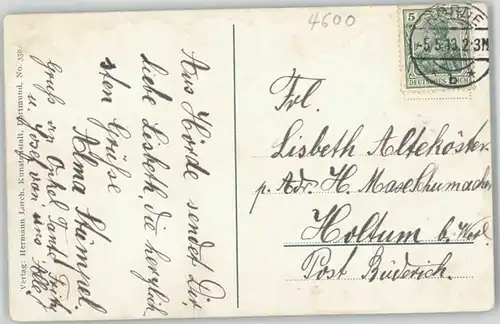 4600
5
-5.5.13.2-3N
b *
DEUTSCHES REICH
Aus Hörde sendet Dir
liebe Lisbeth, die herzlich
sten Grüße
Alma Stümpel.
Gruß von Onkel, Tante, Fritz
u. Josef von uns
Frl.
Lisbeth Alteköster
p. Adr. H. Maschumacher
Holtum b. Werl
Post Büderich.
Verlag: Hermann Lorch, Kunstanstalt, Dortmund. No. 330.